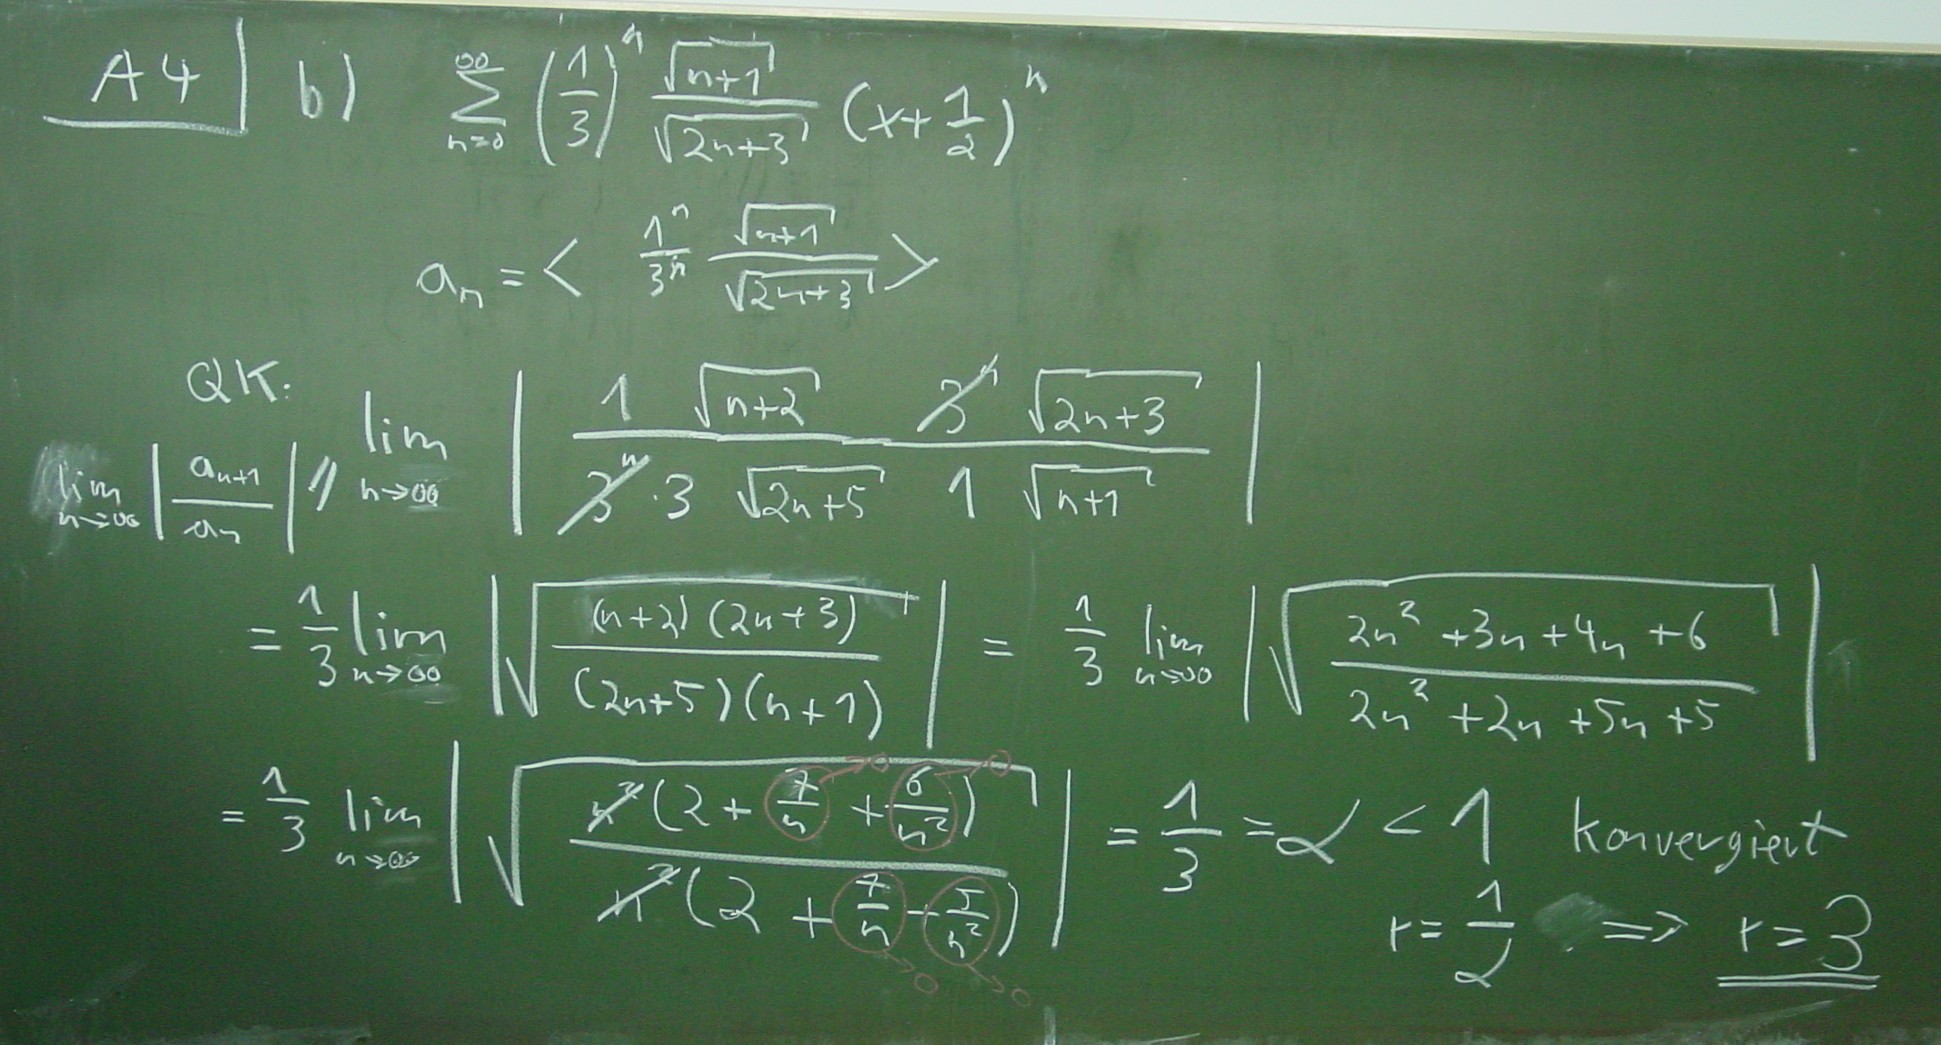 A4 b) ∑_{n=0}^{∞} (1/3)^n √(n+1)/√(2n+3) (x+1/2)^n
a_n = < 1^n/3^n √(n+1)/√(2n+3) >
QK:
lim_{n→∞} |a_{n+1}/a_n| = lim_{n→∞} | (1 √(n+2) 3^n √(2n+3)) / (3^n · 3 √(2n+5) 1 √(n+1)) |
= 1/3 lim_{n→∞} | √( (n+2)(2n+3) / (2n+5)(n+1) ) | = 1/3 lim_{n→∞} | √( (2n²+3n+4n+6) / (2n²+2n+5n+5) ) |
= 1/3 lim_{n→∞} | √( n²(2 + 7/n + 6/n²) / n²(2 + 7/n + 5/n²) ) | = 1/3 = α < 1 konvergiert
→0 →0 →0 →0
r = 1/α ⇒ r = 3